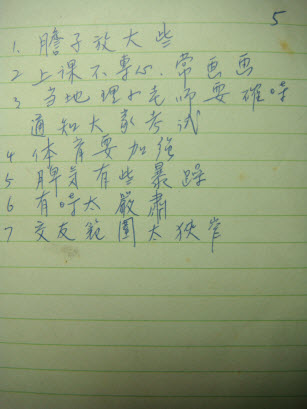 5
1. 膽子放大些
2 上课不專心、常画画
3 当地理小老师要確時
通知大家考试
4 体育要加强
5 脾氣有些暴躁
6 有時太嚴肅
7 交友範圍太狹窄